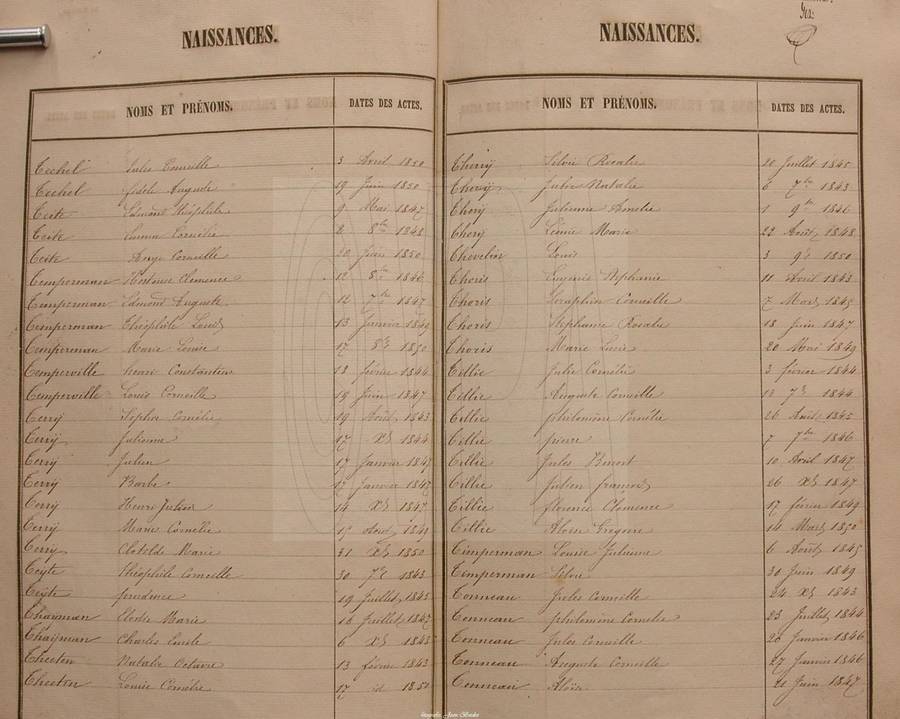 NAISSANCES.
NOMS ET PRÉNOMS. DATES DES ACTES.
Techel Jules Corneille 3 Avril 1850
Techel fidele Auguste 19 Juin 1850
Teite Edmond théophile 9 Mai 1847
Teite Emma Cornélie 2 8bre 1848
Teite Corneille 20 Juin 1850
Temperman Hortense Clemence 12 8bre 1846
Temperman Edmond Auguste 12 7bre 1847
Temperman théophile Louis 13 Janvier 1849
Temperman Marie Louise 17 8bre 1850
Temperville henri Constantin 18 février 1844
Temperville Louis Corneille 19 Juin 1847
Terrÿ Sophie Cornélie 19 Août 1843
Terrÿ Julienne 17 Xbre 1844
Terrÿ Julien 17 Janvier 1847
Terrÿ Barbe 17 Janvier 1847
Terrÿ Henri Julien 14 Xbre 1847
Terrÿ Marie Cornélie 15 Août 1849
Terrÿ Clotilde Marie 31 Xbre 1850
Teÿte théophile Corneille 30 7bre 1843
Teÿte prudence 19 Juillet 1845
Thaÿman Elodie Marie 14 Juillet 1842
Thaÿman Charles Emile 6 Xbre 1845
Theeten Natalie Octavie 13 février 1843
Theeten Louise Cornélie 17 id 1850
NAISSANCES.
NOMS ET PRÉNOMS. DATES DES ACTES.
Therrÿ Silvie Rosalie 20 Juillet 1845
Therrÿ Julie Natalie 6 7bre 1843
Therÿ Julienne Amelie 1 9bre 1846
Therÿ Léonie Marie 22 Août 1848
Thevelin Louis 3 9bre 1850
Thoris Eugenie Stéphanie 11 Avril 1843
Thoris Seraphin Corneille 7 Mars 1845
Thoris Stephanie Rosalie 18 Juin 1847
Thoris Marie Lucie 20 Mai 1849
Tillie Julie Cornélie 3 février 1844
Tillie Auguste Corneille 13 7bre 1844
Tillie philomène Cornélie 26 Août 1845
Tillie pierre 7 7bre 1846
Tillie Jules Benoit 10 Avril 1847
Tillie Julien françois 26 Xbre 1847
Tillie florence Clémence 17 février 1849
Tillie Aloïse Grégoire 14 Mars 1850
Timperman Louise Julienne 6 Août 1845
Timperman Silvie 30 Juin 1849
Tonneau Jules Corneille 24 Xbre 1843
Tonneau philomène Cornélie 23 Juillet 1844
Tonneau Jules Corneille 20 Janvier 1846
Tonneau Auguste Corneille 27 Janvier 1846
Tonneau Aloïse 21 Juin 1847